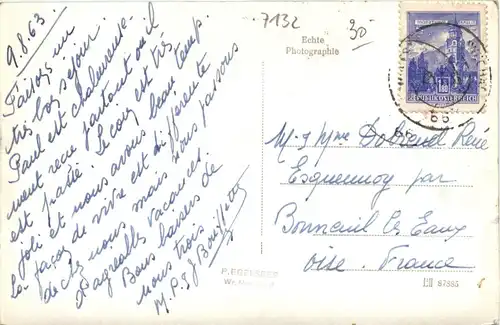 9.8.63.
Passons un
très bon séjour.
Paul est chaleureuse-
ment reçu partout où il
est passé. Le coin est très
joli et nous avons beau temps
La façon de vivre est différente
de chez nous mais nous passons
d'agréables vacances.
Bons baisers de
nous trois
M.P. & J.
7132
30
Echte
Photographie
REPUBLIK ÖSTERREICH
M. & Mme René
Esquennoy par
Bonneuil les Eaux
Oise. France
87885